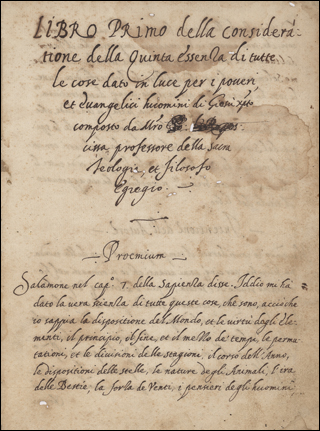 LIBRO PRIMO della considera-
tione della Quinta essenza di tutte
le cose dato in luce per i poveri
et evangelici huomini di Giesù xp̄o
composto da Mro
cissa professore della sacra
Teologia, et filosofo
Egregio.
Proemium
Salamone nel capo 7. della Sapienza disse. Iddio mi ha
dato la vera scienza di tutte queste cose, che sono, acciochè
io sappia la dispositione del Mondo, et le virtù degli Ele-
menti, il principio, il fine, et il mezzo de' tempi, le permu-
tationi, et le divisioni delle stagioni, il corso dell'Anno,
le dispositioni delle stelle, le nature degli Animali, l'ira
delle Bestie, la forza de Venti, i pensieri degli huomini